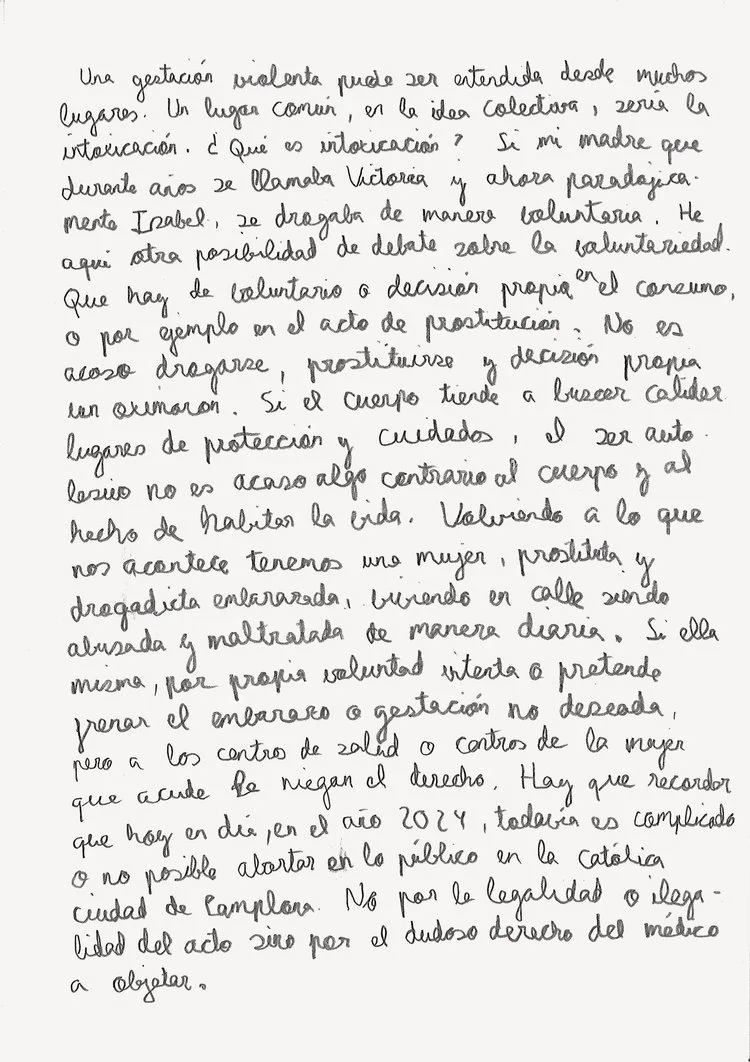 Una gestación violenta puede ser entendida desde muchos
lugares. Un lugar común, en la idea colectiva, sería la
intoxicación. ¿Qué es intoxicación? Si mi madre que
durante años se llamaba Victorea y ahora paradójica-
mente Isabel, se drogaba de manera voluntaria. He
aquí otra posibilidad de debate sobre la voluntariedad.
Que hay de voluntario o decisión propia en el consumo,
o por ejemplo en el acto de prostitución. No es
acaso drogarse, prostituirse y decisión propia
un oximoron. Si el cuerpo tiende a buscar calider
lugares de protección y cuidados, el ser auto-
lesivo no es acaso algo contrario al cuerpo y al
hecho de habitar la vida. Volviendo a lo que
nos acontece tenemos una mujer, prostituta y
drogadicta embarazada, viviendo en calle siendo
abusada y maltratada de manera diaria. Si ella
misma, por propia voluntad intenta o pretende
frenar el embarazo o gestación no deseada,
pero a los centro de salud o centros de la mujer
que acude le niegan el derecho. Hay que recordar
que hoy en día, en el año 2024, todavía es complicado
o no posible abortar en lo público en la católica
ciudad de Pamplona. No por la legalidad o ilega-
lidad del acto sino por el dudoso derecho del médico
a objetar.